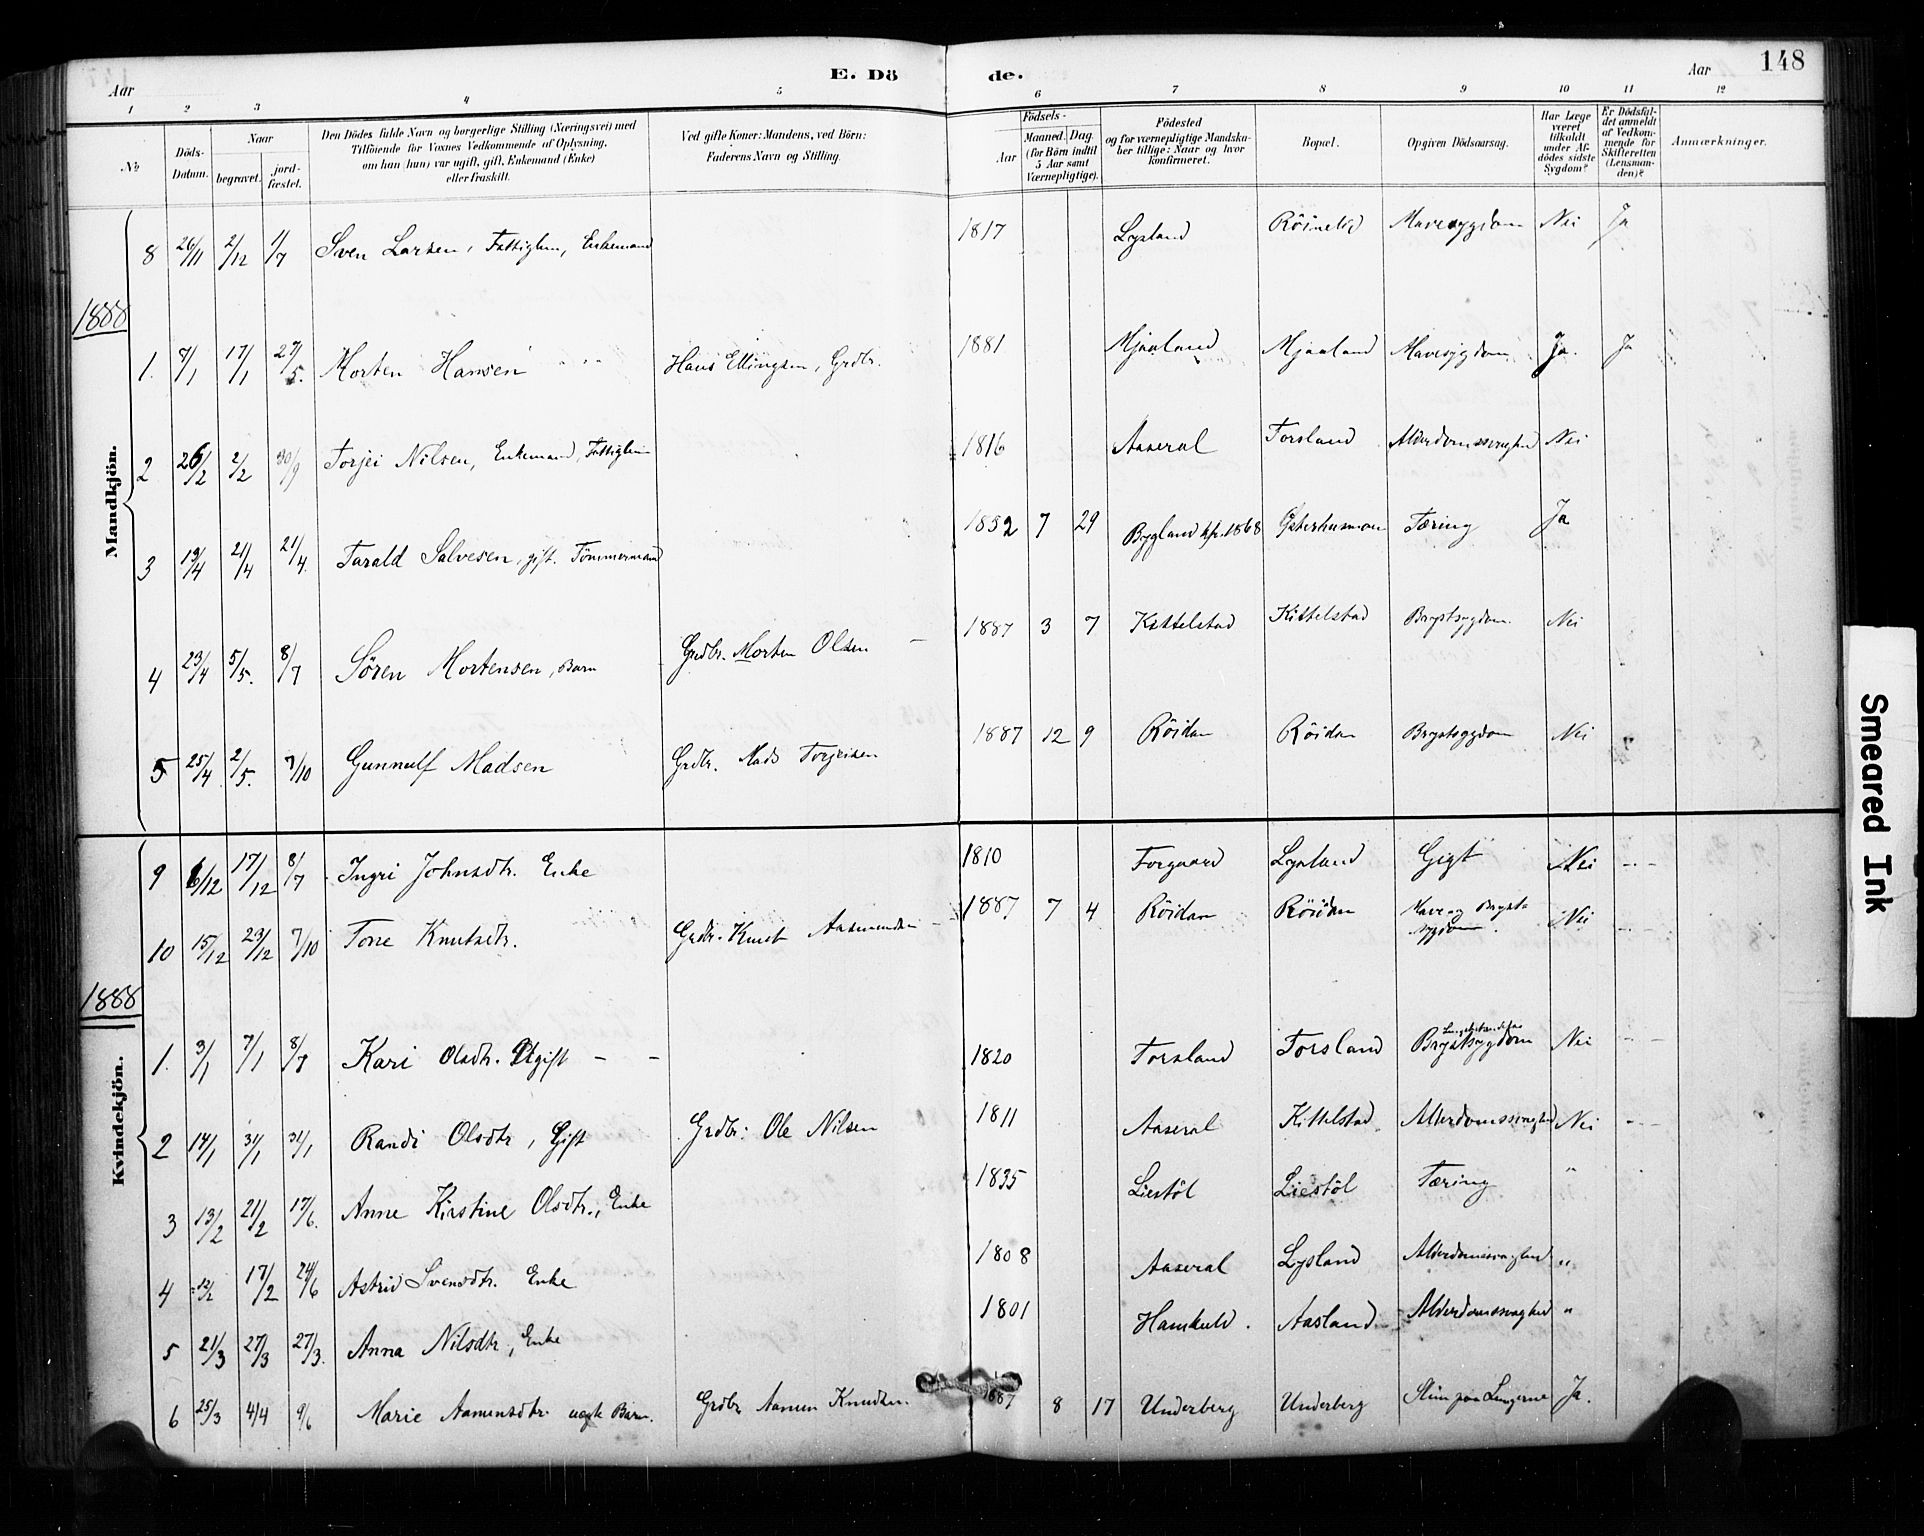 148
Aar E. Dö de. Aar
1 2 3 4 5 6 7 8 9 10 11 12
No Döds-Datum. Naar begravet. jordfæstet. Den Dödes fulde Navn og borgerlige Stilling (Næringsvei) med Tilföiende for Voxnes Vedkommende af Oplysning, om han (hun) var ugift, gift, Enkemand (Enke) eller fraskilt. Ved gifte Koner: Mandens, ved Börn: Faderens Navn og Stilling. Födsels- Aar Maaned. Dag. (for Börn indtil 5 Aar samt Værnepligtige). Födested og for værnepligtige Mandskaber tillige: Naar og hvor konfirmeret. Bopæl. Opgiven Dödsaarsag. Har Læge været tilkaldt under Afdödes sidste Sygdom? Er Dödsfaldet anmeldt af Vedkommende for Skifteretten (Lensmanden)? Anmærkninger.
Mandkjön.
8 26/11 2/12 1/7 Sven Larsen, Fattiglem, Enkemand 1817 Lysland Mavesygdom Nei Ja
1888
1. 17/1 27/5. Morten Hansen Hans Ellingsen, Grdbr. 1881 Mjaaland Mjaaland Mavesygdom Ja. Ja
2 26/2 2/2 30/9 Torjei Nilsen, Enkemand, Fattiglem 1816 Aaseral Torsland Alderdomssvaghed Nei
3 19/4 21/4 21/4. Tarald Salvesen, gift. Tömmermand 1852 7 29 Bygland kfr. 1868 Österhusmoen Tæring Ja
4 23/4 5/5. 8/7 Sören Mortensen, Barn Grdbr. Morten Olsen 1887 3 7 Kittelstad Kittelstad Brystsygdom. Nei
5 25/4 2/5. 7/10 Gunnulf Madsen Grdbr. Mads Torjeisen 1887 12 9 Röidan Röidan Brystsygdom Nei
Kvindekjön.
9 6/12 17/12 8/7 Ingri Johnsdtr. Enke 1810 Torgaard Lysland Gigt Nei
10 15/12 23/12 7/10 Tone Knutsdtr. Grdbr. Knut Aasmundsen 1887 7 4 Röidan Röidan Mave og Brystsygdom. Nei
1888
1. 3/1 7/1 8/7 Kari Olsdtr. Ugift 1820 Torsland Torsland Brystsygdom Nei
2 14/1 31/1 31/1 Randi Olsdtr, Gift Grdbr: Ole Nilsen 1811 Aaseral Kittelstad. Alderdomssvaghed Nei
3 13/2 21/2 17/6. Anne Kirstine Olsdtr., Enke 1835 Liestöl Liestöl Tæring "
4 12/2 17/2 24/6 Astrid Svensdtr. Enke 1808 Aaseral Lysland Alderdomssvaghed "
5 21/3 27/3 27/3. Anna Nilsdtr, Enke 1801 Hamkuld. Aasland Alderdomssvaghed "
6 25/3 4/4 9/6 Marie Aamunsdtr. uegte Barn. Grdbr Aamun Knudsen 1887 8 17 Underberg Underberg Slim paa Lungerne Ja.
Smeared Ink